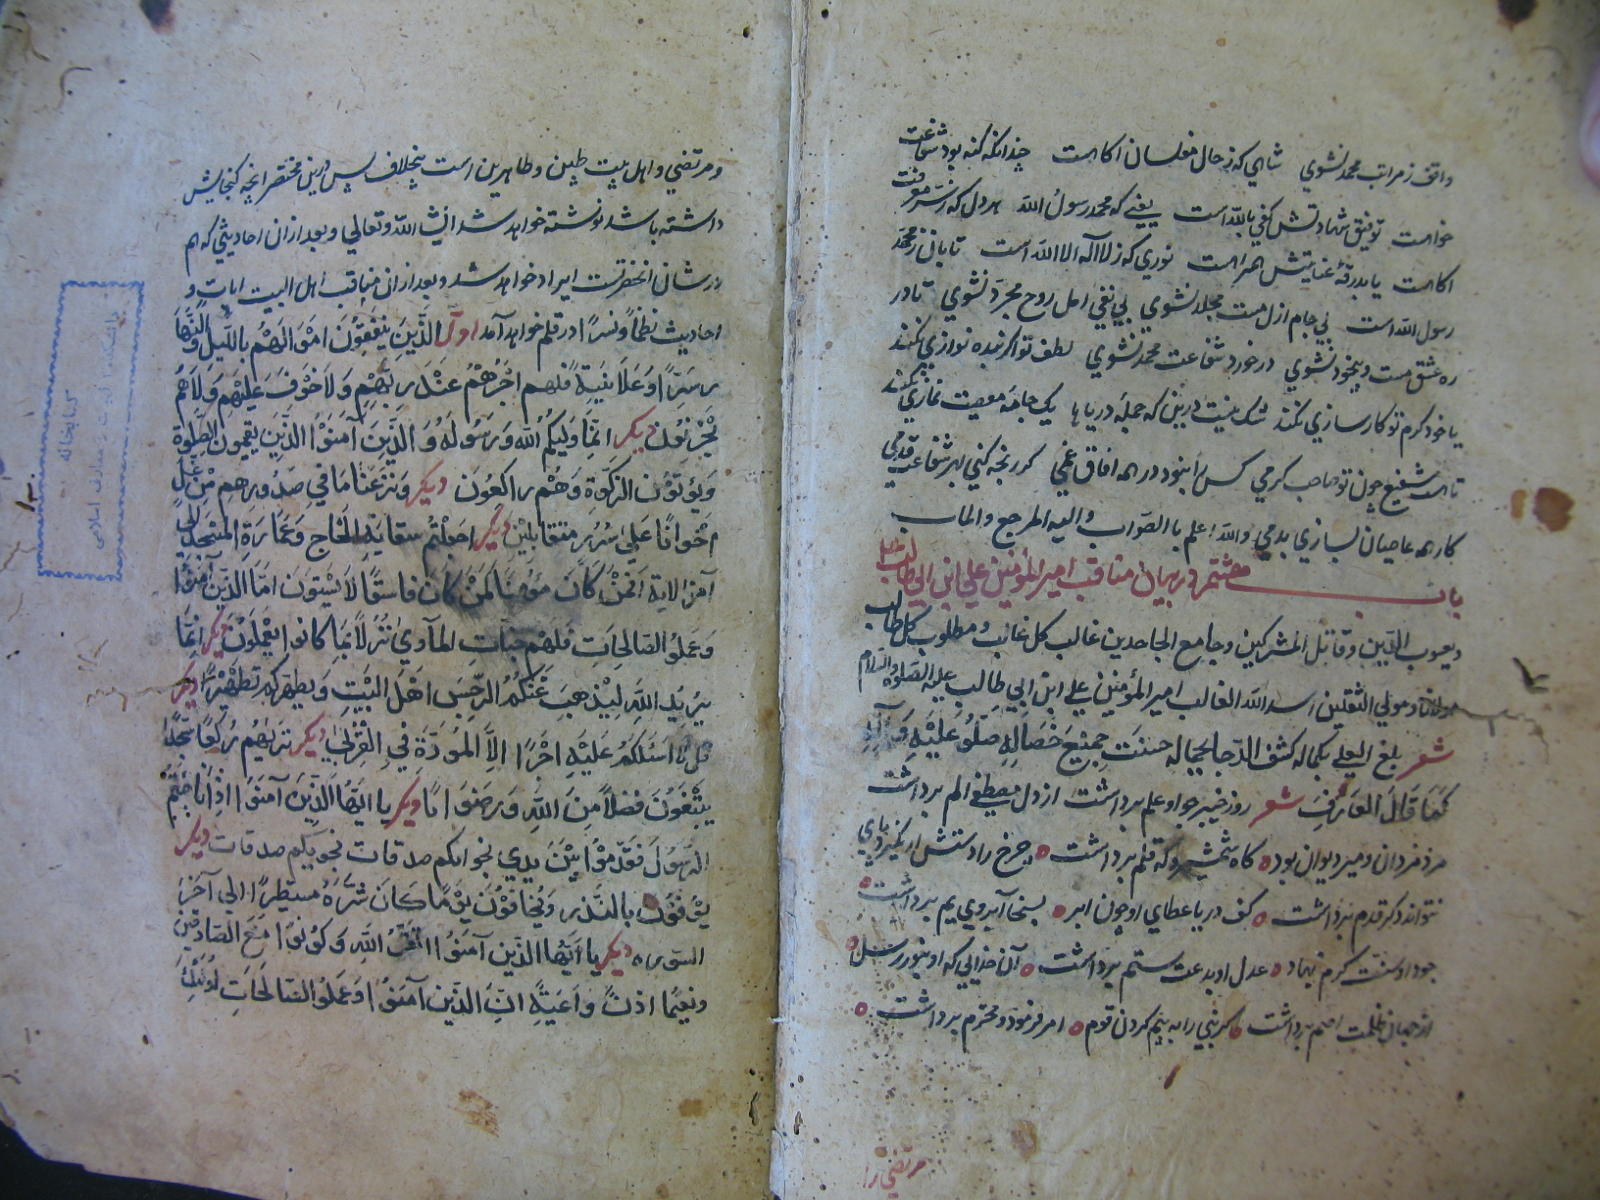 واقف ز مراتب محمد نشوي شاهي که ز حال مفلسان اکاهست چندانکه کنه بود شفاعت
خواهست توفيق شهادتش کفي بالله است يعني که محمد رسول الله هر دل که ز سر معرفت
اکاهست يا بدرقهٔ عنايتش همراهست نوري که ز لا اله الا الله است تابان ز محمد
رسول الله است بي جام ازل مست مجلد نشوي بي نفي اهل روح مجرد نشوي تا در
ره عشق مست و بيخود نشوي در خورد شفاعت محمد نشوي لطف تو اکر بنده نوازي نکند
يا خود کرم تو کارسازي نکند شک نيست درين که جمله درياها يک جامه معصيت نمازي نکند
تا هست شفيع چون تو صاحب کرمي کس را نبود در همه افاق غمي کر رنجه کني بهر شفاعت قدمي
کار همه عاصيان بسازي بدمي والله اعلم باالصواب واليه المرجع والماب
باب هشتم در بيان مناقب امير المؤمنين علي ابن ابي طالب
يعسوب الدين وقاتل المشرکين وجامع الجاحدين غالب کل غائب ومطلوب کل طالب
مولانا ومولي الثقلين اسد الله الغالب امير المؤمنين علي ابن ابي طالب عليه الصلوة والسلام
شعر بلغ العلي بکماله کشف الدجا بجماله حسنت جميع خصاله صلو عليه وآله
کما قال العارف شعر روز خيبر چو او علم برداشت از دل مصطفي الم برداشت
مرد مردان ومير ديوان بود کاه شمشير وکه قلم برداشت چرخ را دستش ار نکيرد پاي
نتواند دکر قدم برداشت کف دريا عطاي او چون ابر بسخا آبروي يم برداشت
جود او سنت کرم نهاد عدل او بدعت ستم برداشت آن خدائي که او بنور رسل
از جهان ظلمت اصم برداشت کر نبي را به يتيم کردن قوم امر فرمود ومحترم برداشت
مرتضي را
ومرتضي واهل بيت طيبين وطاهرين است بيخلاف پس درين مختصر انچه کنجايش
داشته باشد نوشته خواهد شد انشا الله وتعالي وبعد از ان احاديثي که هم
در شان انحضرتست ايراد خواهد شد وبعد از ان مناقب اهل البيت ايات و
احاديث نظما ونسرا در قلم خواهد آمد اول الذين ينفقون اموالهم بالليل والنها
ر سرا وعلانية فلهم اجرهم عند ربهم ولا خوف عليهم ولا هم
يحزنون ديکر انما وليکم الله ورسوله والذين آمنوا الذين يقيمون الصلوة
ويؤتون الزکوة وهم راکعون ديکر ونزعنا ما في صدورهم من غل
اخوانا علي سرر متقابلين ديکر اجعلتم سقاية الحاج وعمارة المسجد الي
آخر الاية افمن کان مؤمنا کمن کان فاسقا لا يستون اما الذين آمنوا
وعملوا الصالحات فلهم جنات المآوي نزلا بما کانوا يعملون ديکر انما
يريد الله ليذهب عنکم الرجس اهل البيت ويطهرکم تطهيرا ديکر
قل لا اسئلکم عليه اجرا الا المودة في القربي ديکر تريهم رکعا سجدا
يبتغون فضلا من الله ورضوانا ديکر يا ايها الذين آمنوا اذا ناجيتم
الرسول فقدموا بين يدي نجواکم صدقات نجويکم صدقات ديکر
يوفون بالنذر ويخافون يوما کان شره مستطيرا الي آخر
السوره ديکر يا ايها الذين آمنوا اتقوا الله وکونوا مع الصادقين
وتعيها اذن واعية ان الذين آمنوا وعملوا الصالحات اولئک
کتابخانه
دانشکده الهيات و معارف اسلامي